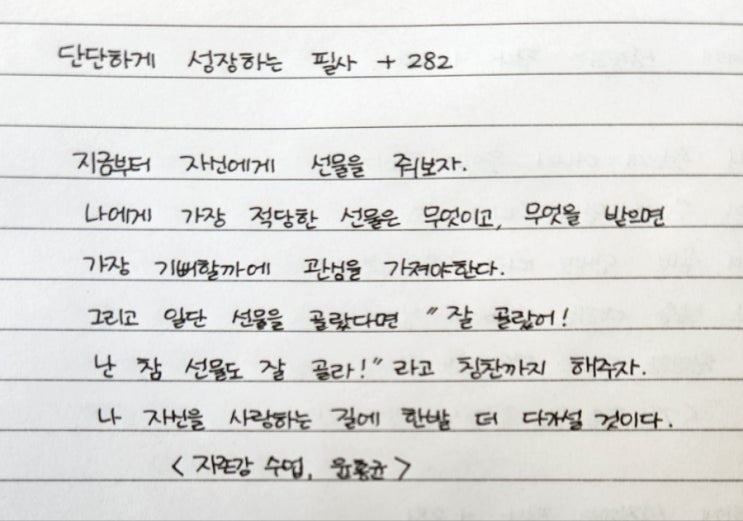 단단하게 성장하는 필사 + 282
지금부터 자신에게 선물을 줘보자.
나에게 가장 적당한 선물은 무엇이고, 무엇을 받으면
가장 기뻐할까에 관심을 가져야한다.
그리고 일단 선물을 골랐다면 "잘 골랐어!
난 참 선물도 잘 골라!"라고 칭찬까지 해주자.
나 자신을 사랑하는 길에 한발 더 다가설 것이다.
<자존감 수업, 윤홍균>